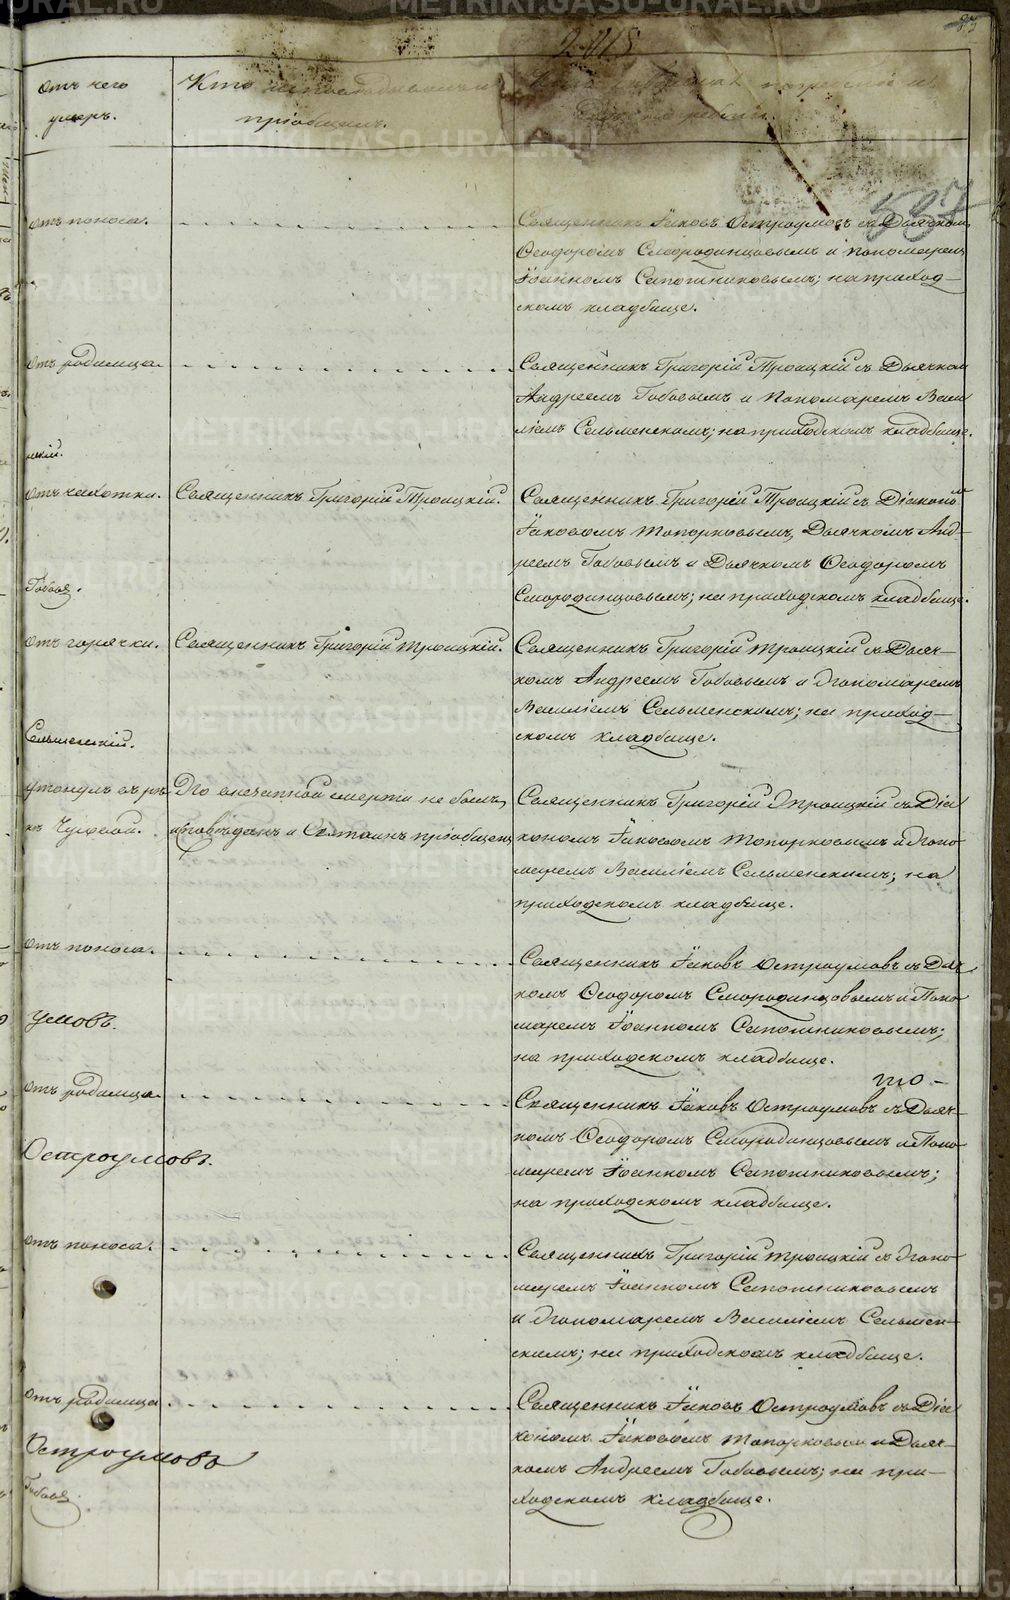 Отъ чего
умеръ.
Кто исповѣдывалъ и
пріобщалъ.
Кто
погребенъ.
587
Отъ поноса.
Священникъ Іаковъ Остроумовъ съ Дьячкомъ
Ѳеодоромъ Смородинцовымъ и Пономаремъ
Іоанномъ Сапожниковымъ; на приход-
скомъ кладбище.
Отъ родимца.
Священникъ Григорій Троицкій съ Дьячком
Андреемъ Бобовымъ и Пономаремъ Васи
ліемъ Сельменскимъ; на приходскомъ кладбище.
цкій.
Отъ чахотки.
Священникъ Григорій Троицкій.
Священникъ Григорій Троицкій съ Діакономъ
Іаковомъ Топорковымъ, Дьячкомъ Анд-
реемъ Бобовымъ и Дьячкомъ Ѳеодоромъ
Смородинцовымъ; на приходскомъ кладбище.
Отъ горячки.
Священникъ Григорій Троицкій.
Священникъ Григорій Троицкій съ Дьяч-
комъ Андреемъ Бобовымъ и Пономаремъ
Василіемъ Сельменскимъ; на приход-
скомъ кладбище.
Сельменскій.
утонулъ въ рѣ-
кѣ Чусовой.
По внезапной смерти не былъ
исповѣданъ и Св. Таинъ пріобщенъ
Священникъ Григорій Троицкій съ Діа
кономъ Іаковомъ Топорковымъ и Поно
маремъ Василіемъ Сельменскимъ; на
приходскомъ кладбище.
Отъ поноса.
Священникъ Іаковъ Остроумовъ съ Дьяч
комъ Ѳеодоромъ Смородинцовымъ и Поно
маремъ Іоанномъ Сапожниковымъ;
на приходскомъ кладбище.
умовъ.
то-
Отъ родимца.
Священникъ Іаковъ Остроумовъ съ Дьяч-
комъ Ѳеодоромъ Смородинцовымъ и Поно
маремъ Іоанномъ Сапожниковымъ;
на приходскомъ кладбище.
Остроумовъ.
Отъ поноса.
Священникъ Григорій Троицкій съ Поно-
маремъ Іоанномъ Сапожниковымъ
и Пономаремъ Василіемъ Сельмен-
скимъ; на приходскомъ кладбище.
Отъ родимца
Священникъ Іаковъ Остроумовъ съ Діа
кономъ Іаковомъ Топорковым и Дьяч-
комъ Андреемъ Бобовымъ; на при-
ходскомъ кладбище.
Остроумовъ
METRIKI.GASO-URAL.RU